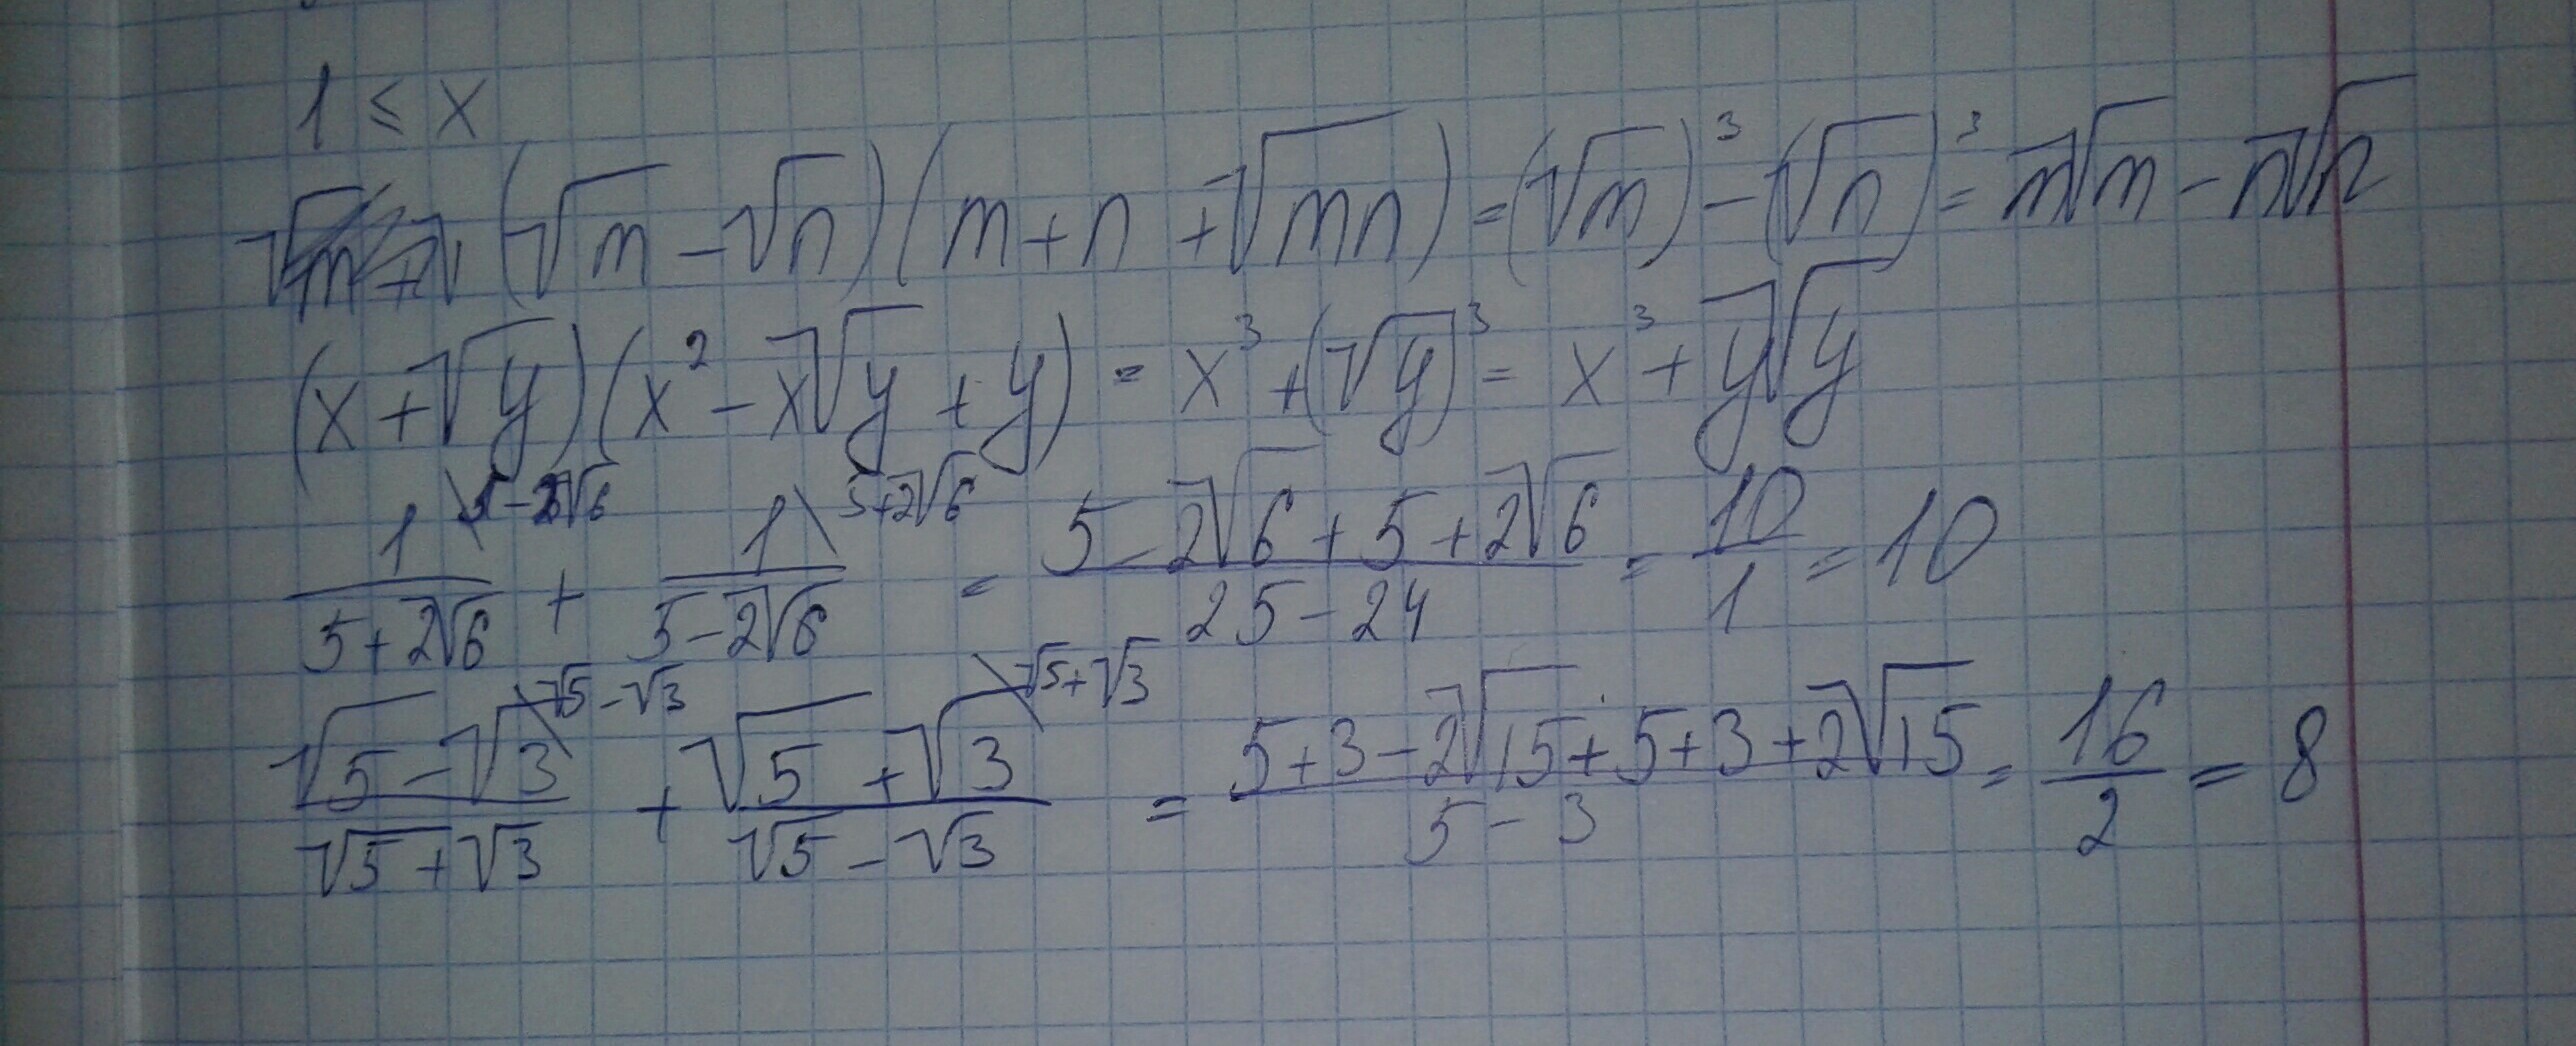 1 ≤ x
(√m - √n)(m + n + √mn) = (√m)³ - (√n)³ = m√m - n√n
(x + √y)(x² - x√y + y) = x³ + (√y)³ = x³ + y√y
1\5-2√6 / 5+2√6 + 1\5+2√6 / 5-2√6 = 5-2√6+5+2√6 / 25-24 = 10/1 = 10
√5-√3\√5-√3 / √5+√3 + √5+√3\√5+√3 / √5-√3 = 5+3-2√15+5+3+2√15 / 5-3 = 16/2 = 8